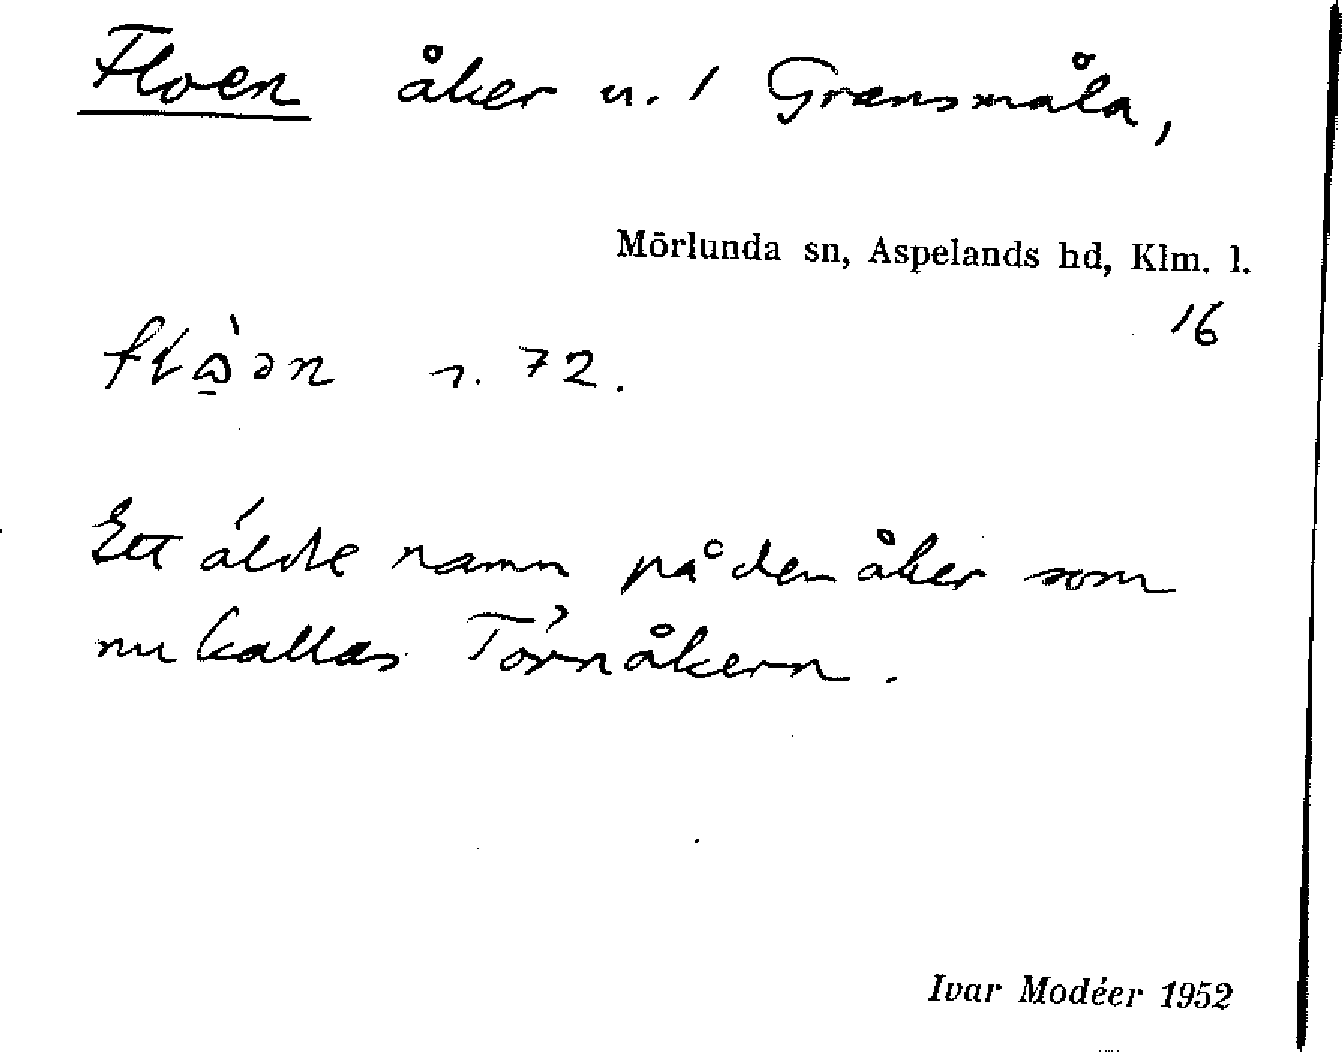 Floen åker u. 1 Gränsmåla,
Mörlunda sn, Aspelands hd, Klm. l.
16
s. 72.
Ett äldre namn på den åker som
nu kallas Törnåkern.
Ivar Modéer 1952